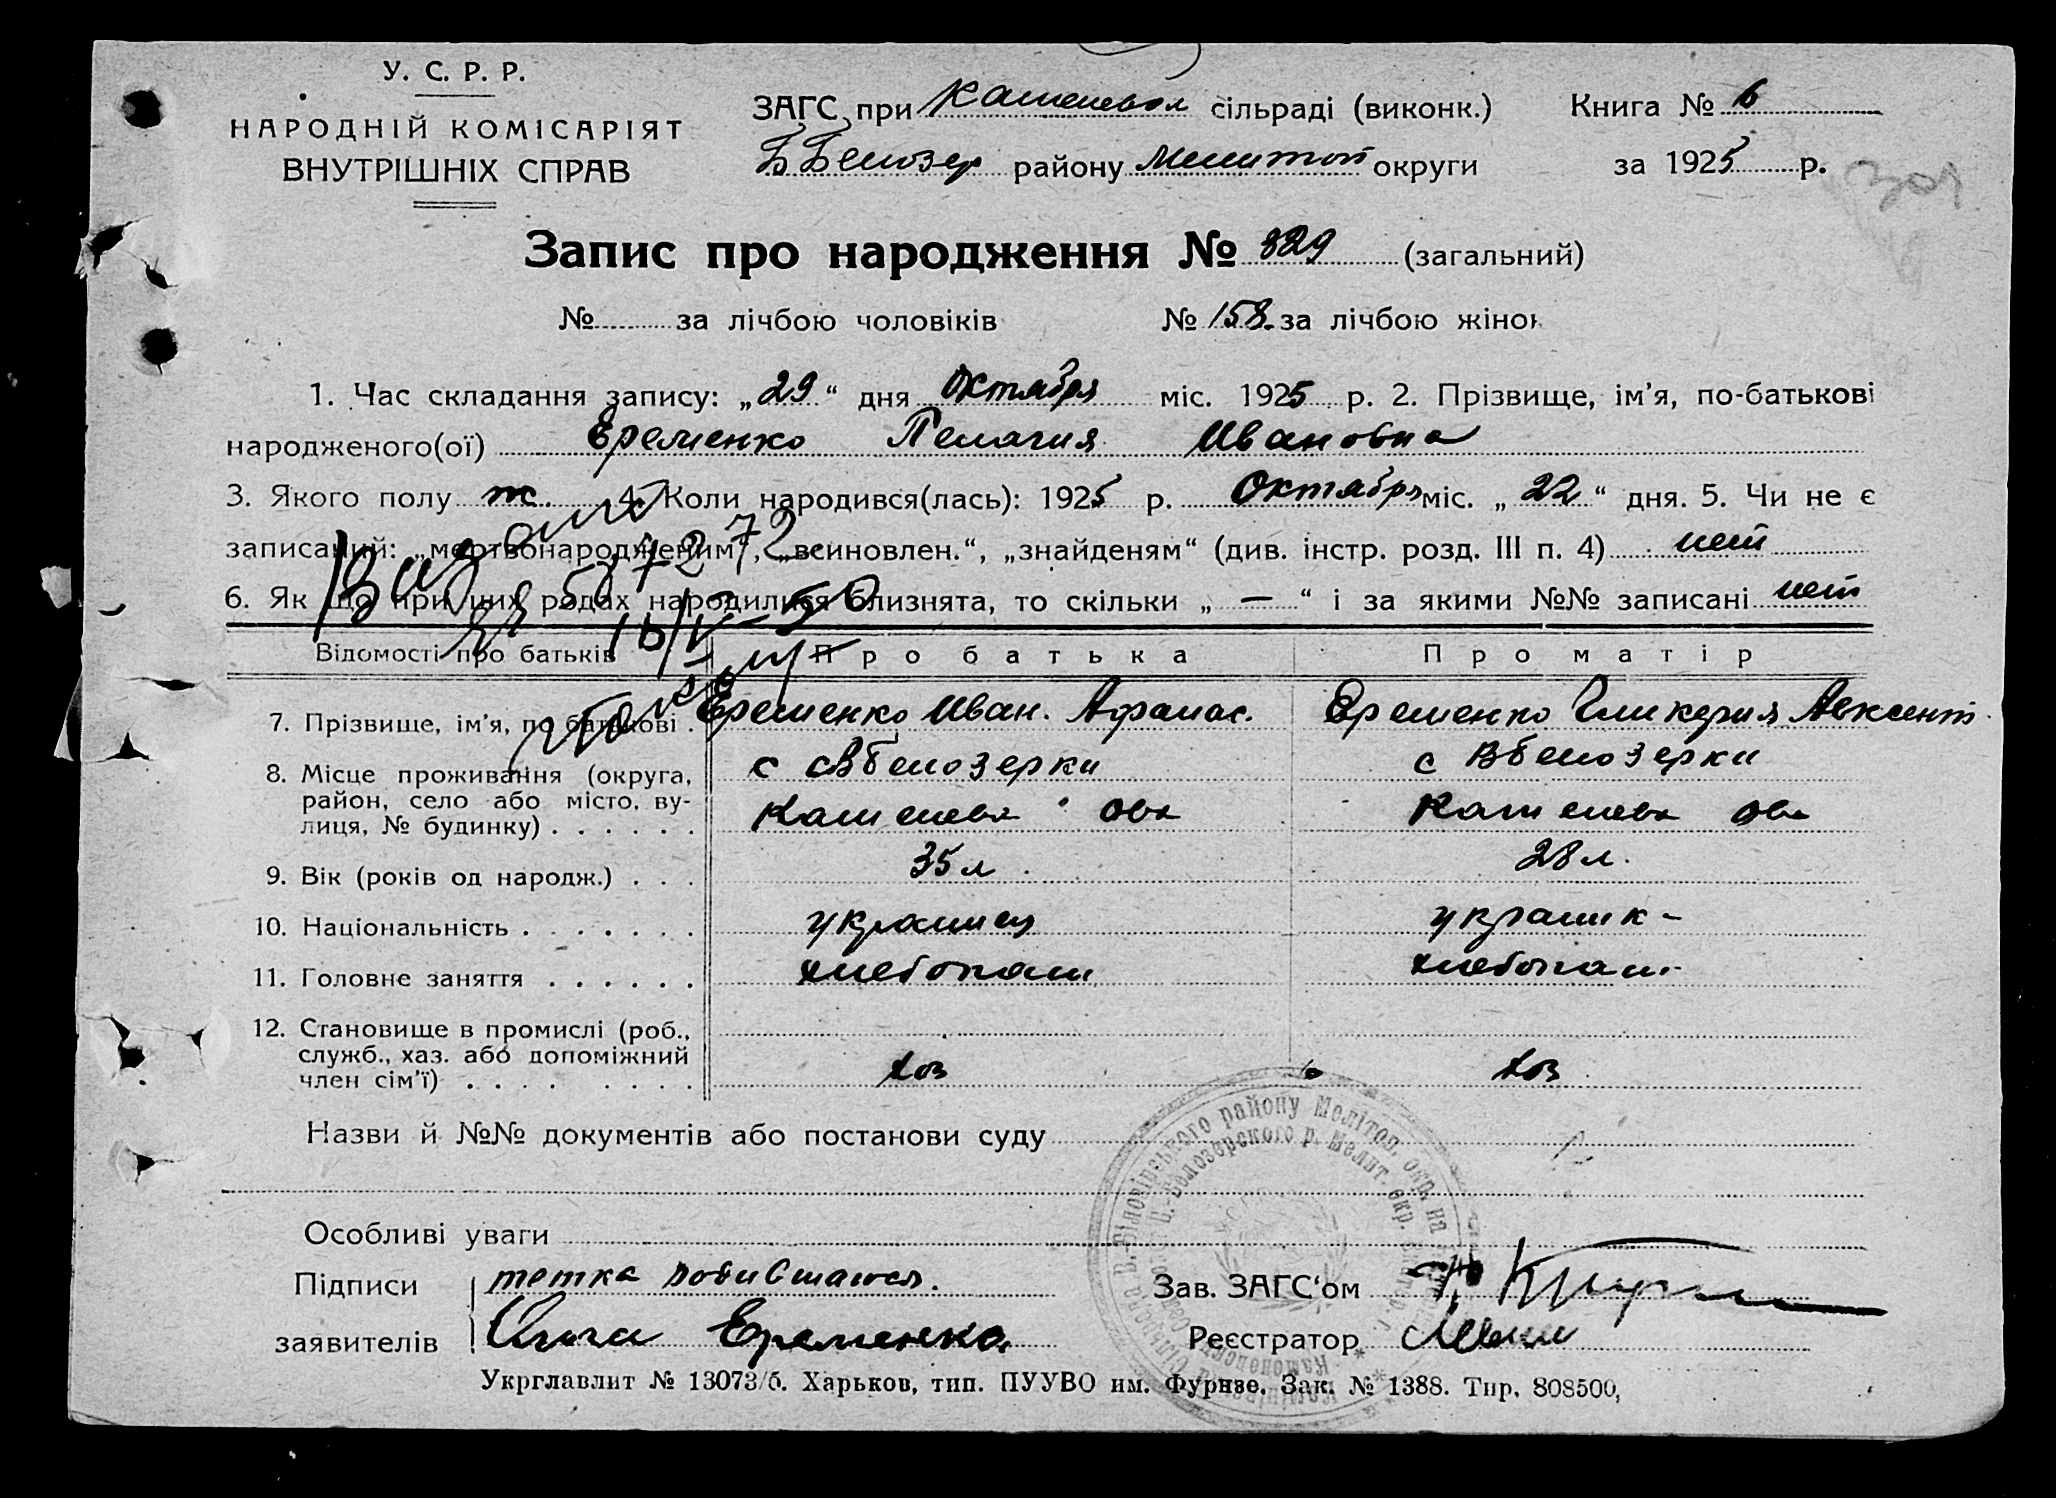 У. С. Р. Р.
НАРОДНІЙ КОМІСАРІЯТ
ВНУТРІШНІХ СПРАВ
ЗАГС при сільраді (виконк.)
Б Белозер району Мелитоп округи
Книга № 6
за 1925 р.
309
Запис про народження № 329 (загальний)
№ за лічбою чоловіків № 158. за лічбою жінок
1. Час складання запису: „29“ дня Октября міс. 1925 р. 2. Прізвище, ім’я, по-батькові
народженого(ої) Еременко Пелагия Ивановна
3. Якого полу ж. 4. Коли народився(лась): 1925 р. Октябрь міс. „22“ дня. 5. Чи не є
записаний: „мертвонародженим“, „всиновлен.“, „знайденям“ (див. інстр. розд. III п. 4) нет
6. Як що при цих родах народилися близнята, то скільки „ — “ і за якими №№ записані нет
Відомості про батьків Про батька Про матір
7. Прізвище, ім’я, по батькові . Еременко Иван. Афанас. Еременко Гликерия Авксент.
8. Місце проживання (округа, район, село або місто, вулиця, № будинку) . . . . . . с Вбелозерки с Вбелозерки
9. Вік (років од народж.) . . . 35 л. 28 л.
10. Національність . . . . . . . украинец украинк-
11. Головне заняття . . . . . . хлебопаш хлебопаш.
12. Становище в промислі (роб., служб., хаз. або допоміжний член сім’ї) . . . . . . . . хоз хоз
Назви й №№ документів або постанови суду
Особливі уваги
Підписи заявителів тетка родившаюся.
Ольга Еременко
Зав. ЗАГС‘ом
Реєстратор
Укрглавлит № 13073/б. Харьков, тип. ПУУВО им. Фрунзе. Зак. № 1388. Тир. 808500,